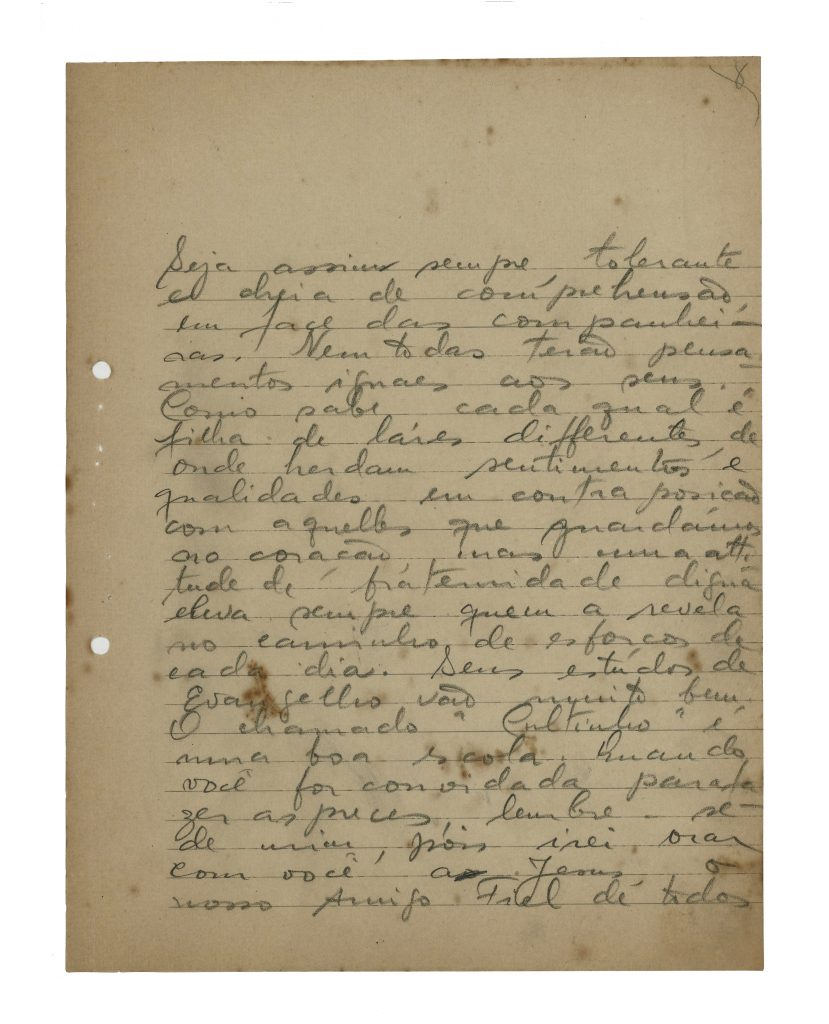 8
Seja assim sempre, tolerante
e cheia de comprehensão,
em face das companhei-
ras. Nem todas terão pensa
mentos iguaes aos seus.
Como sabe cada qual é
filha de láres differentes, de
onde herdam sentimentos e
qualidades em contraposicão
com aquelles que guardámos
no coracão, mas uma atti-
tude de fraternidade digna
eleva sempre quem a revela
no caminho de esforcos de
cada dia. Seus estúdos de
Evangelho vão muito bem.
O chamado "Cultinho" é
uma boa escola. Quando
você for convidada para fa
zer as preces, lembre-se
de mim, pois irei orar
com você, a Jesus o
nosso Amigo Fiel de todos